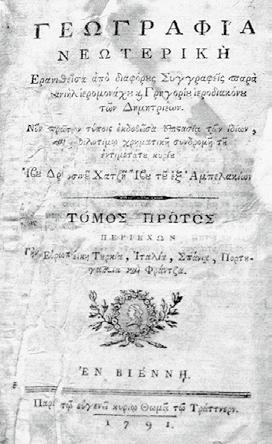 ΓΕΩΓΡΑΦΙΑ
ΝΕΩΤΕΡΙΚΗ
Ερανισθεῖσα ἀπὸ διαφόρους Συγγραφεῖς παρὰ
Δανιὴλ ἱερομονάχου καὶ Γρηγορίου ἱεροδιακόνου
τῶν Δημητριέων.
Νῦν πρῶτον τύποις ἐκδοθεῖσα ἐπιστασίᾳ τῶν ἰδίων,
καὶ φιλοτίμῳ χρηματικῇ συνδρομῇ τοῦ
ἐντιμοτάτου κυρίου
τοῦ ἐξ Ἀμπελακίων
ΤΟΜΟΣ ΠΡΩΤΟΣ
ΠΕΡΙΕΧΩΝ
Τὴν Εὐρωπαϊκὴ Τυρκία, Ἰταλία, Σπάνια, Πορτυ-
γαλλία καὶ Φράντζα.
ἘΝ ΒΙΕΝΝΗ.
Παρὰ τῷ εὐγενεῖ κυρίῳ Θωμᾷ τῷ Τράττνερν.
1791.